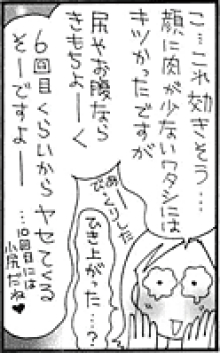 こ…これ効きそう…
顔に肉が少ないワタシには
キツかったですが
尻やお腹なら
きもちよーーく
6回目くらいから ヤセてくる
そーですよー
…10回目には
小尻だね♥
あー
びっくりした
ひき上がった…?